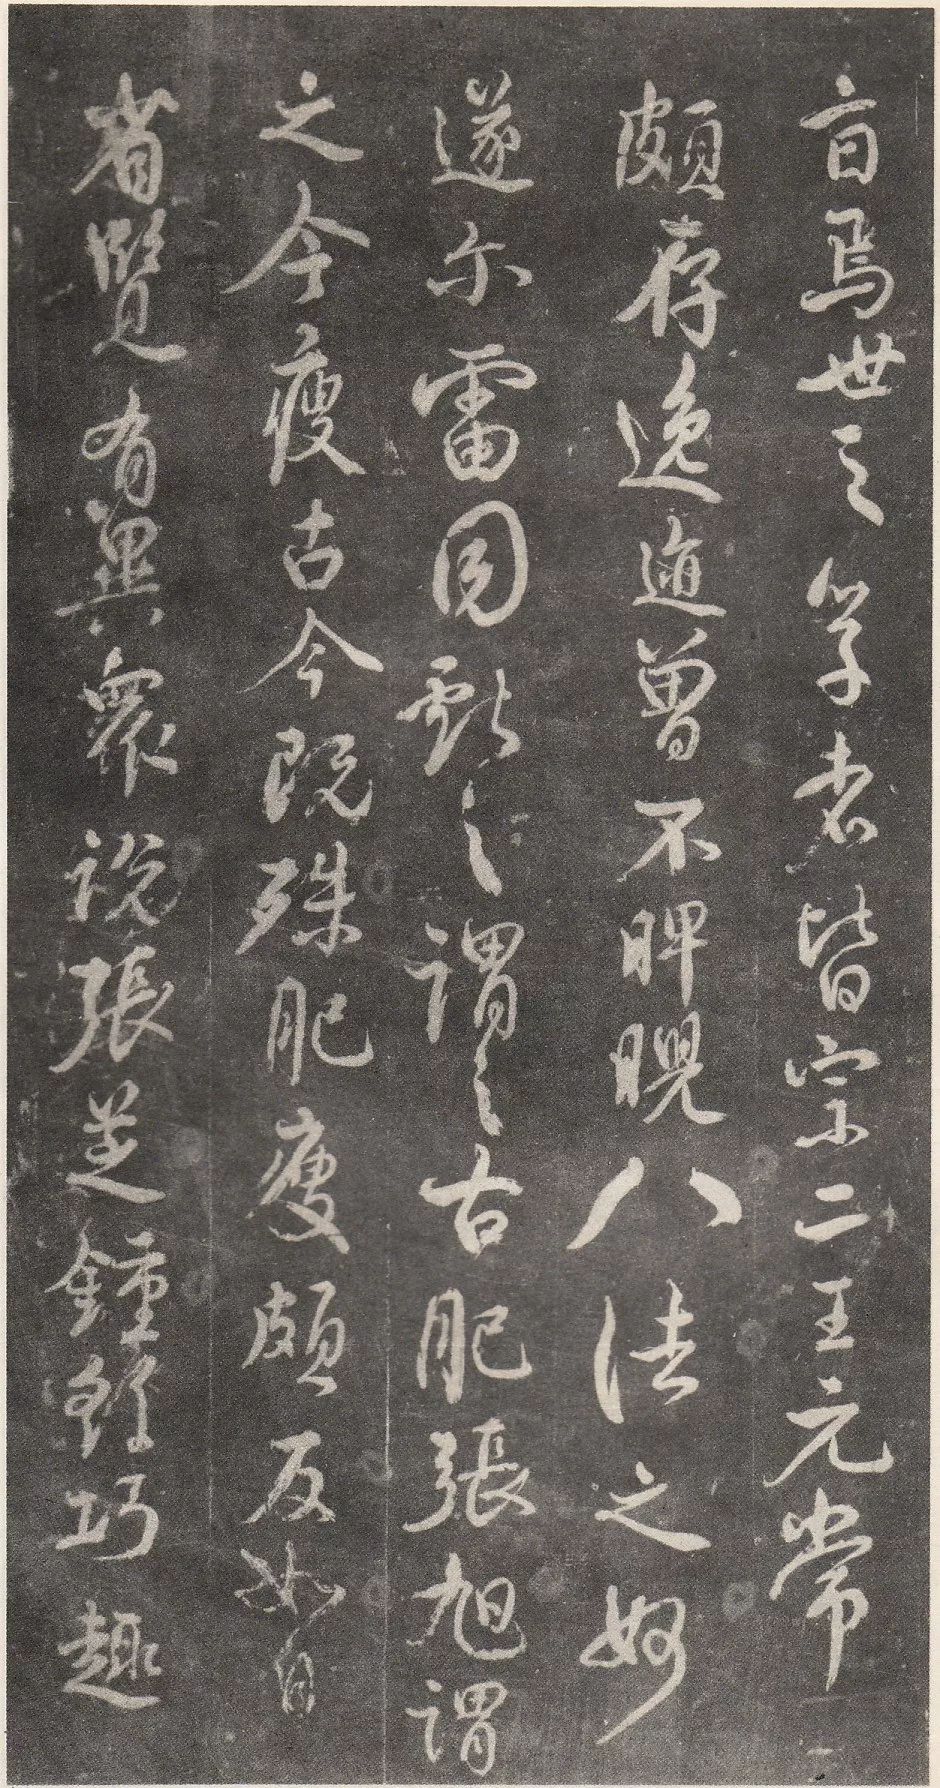 焉世之學者皆宗二王元常
頗存逸迹曾不睥睨八法之妙
遂尔雷同獻之謂之古肥張旭謂
之今瘦古今既殊肥瘦頗反如自
省覽有異衆說張芝鍾繇巧趣